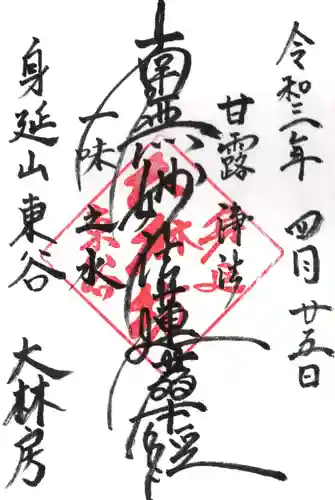 令和三年 四月 廿五日
甘露 浄法
南無妙法蓮華経
一味 之水
身延山 東谷 大林房